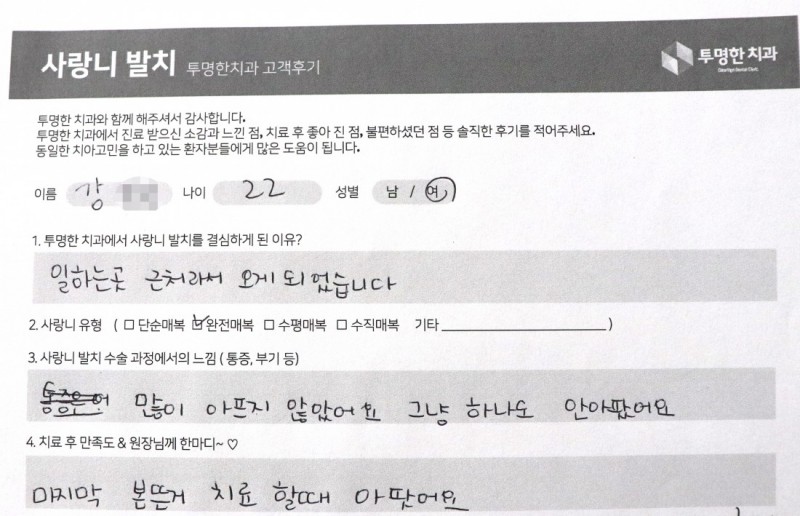 사랑니 발치 투명한치과 고객후기
투명한 치과
투명한 치과와 함께 해주셔서 감사합니다.
투명한 치과에서 진료 받으신 소감과 느낀 점, 치료 후 좋아 진 점, 불편하셨던 점 등 솔직한 후기를 적어주세요.
동일한 치아고민을 하고 있는 환자분들에게 많은 도움이 됩니다.
이름 강 나이 22 성별 남 / 여
1. 투명한 치과에서 사랑니 발치를 결심하게 된 이유?
일하는곳 근처라서 오게 되었습니다
2. 사랑니 유형 ( □ 단순매복 ☑ 완전매복 □ 수평매복 □ 수직매복 기타 )
3. 사랑니 발치 수술 과정에서의 느낌 ( 통증, 부기 등)
많이 아프지 않았어요 그냥 하나도 안아팠어요
4. 치료 후 만족도 & 원장님께 한마디~ ♡
마지막 본뜬거 치료 할때 아팠어요